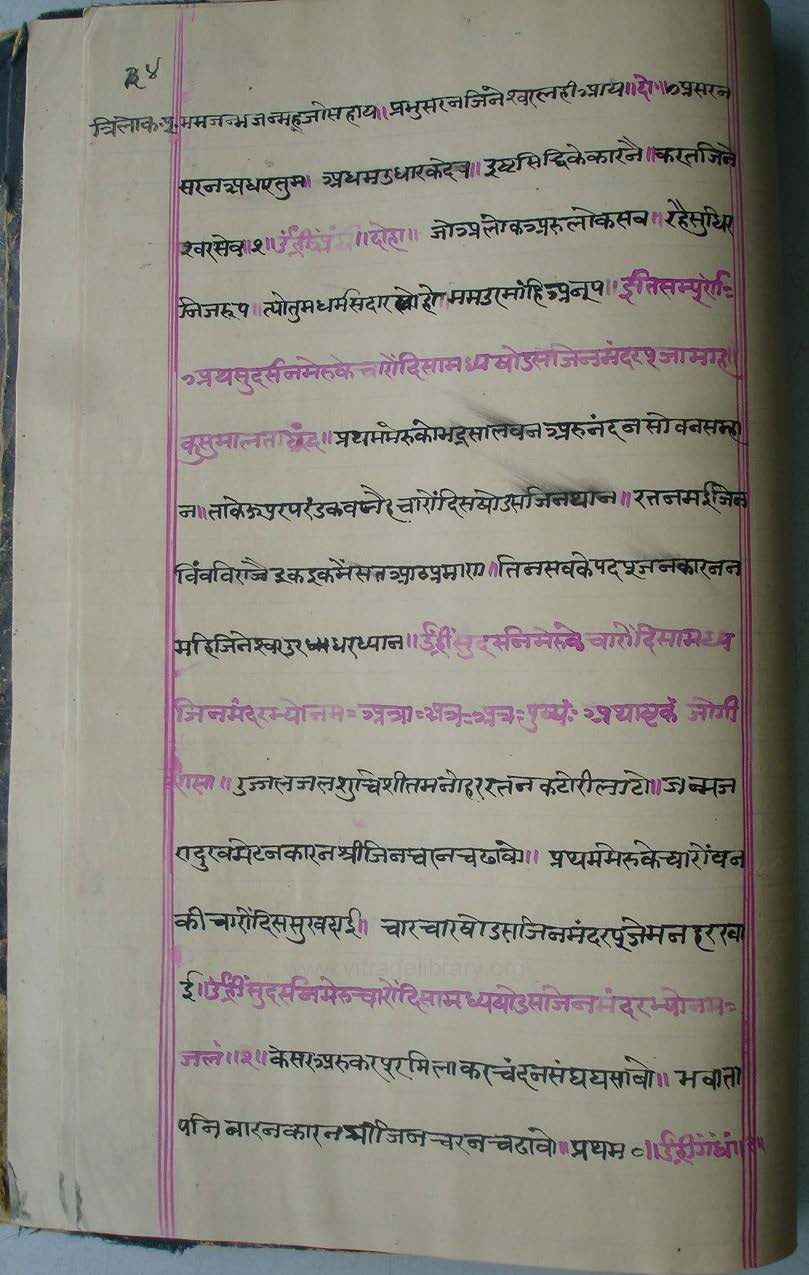 २४
त्रिलोक.पू. ममजन्मजन्महूजोसहाय॥ प्रभुसरनजिनेश्वरलहीआय॥दो॥अप्रसरन
सरनअधारतुम॥ अधमउधारकदेव॥ इष्टसिद्धिकेकारनै॥करतजिने
श्वरसेव॥१॥ दोहा॥ जोअलोकअरुलोकसब॥रहैसुथिर
निजरूप॥त्योतुमधर्मसदारहोममउरमांहिअनूप॥इतिसम्पूर्ण॥
अथसुदर्सनमेरुकेचारोंदिसामध्यषोडसजिनमंदर
कुसुमालताछंद॥प्रथममेरुकोभद्रसालवनअरुनंदनसोवनस
न॥ताकेऊपरपरंडकवन्हैचारोंदिसषोडसजिनथान॥रतनमईजिन
विंवविराजैइकइकमैंसतआठप्रमाण॥तिनसवकेपदपूजनकारनन
महिजिनेश्वरउरधरध्यान॥उंह्रींसुदर्सनमेरुके चारोंदिसामध्य
जिनमंदरभ्योनमः अत्राः अत्रः अत्रः पुष्पं: अथाष्टकं जोगी
रासा॥उज्जलजलशुचिशीतमनोहररतनकटोरीलावो॥जन्मज
रादुखमेटनकारनश्रीजिनचरनचढावो॥ प्रथममेरुकेचारोंवन
कीचारोंदिससुखदाई॥ चारचारषोडसजिनमंदरपूजेमनहरखा
ई॥उंह्रींसुदर्सनमेरुचारोंदिसामध्यषोडसजिनमंदरभ्योनमः
जलं॥१॥केसरअरुकरपूरमिलाकरचंदनसंघघसावो॥ भवाता
पनिवारनकारनश्रीजिनचरनचढावो॥प्रथम०॥उंह्रींगंधं॥